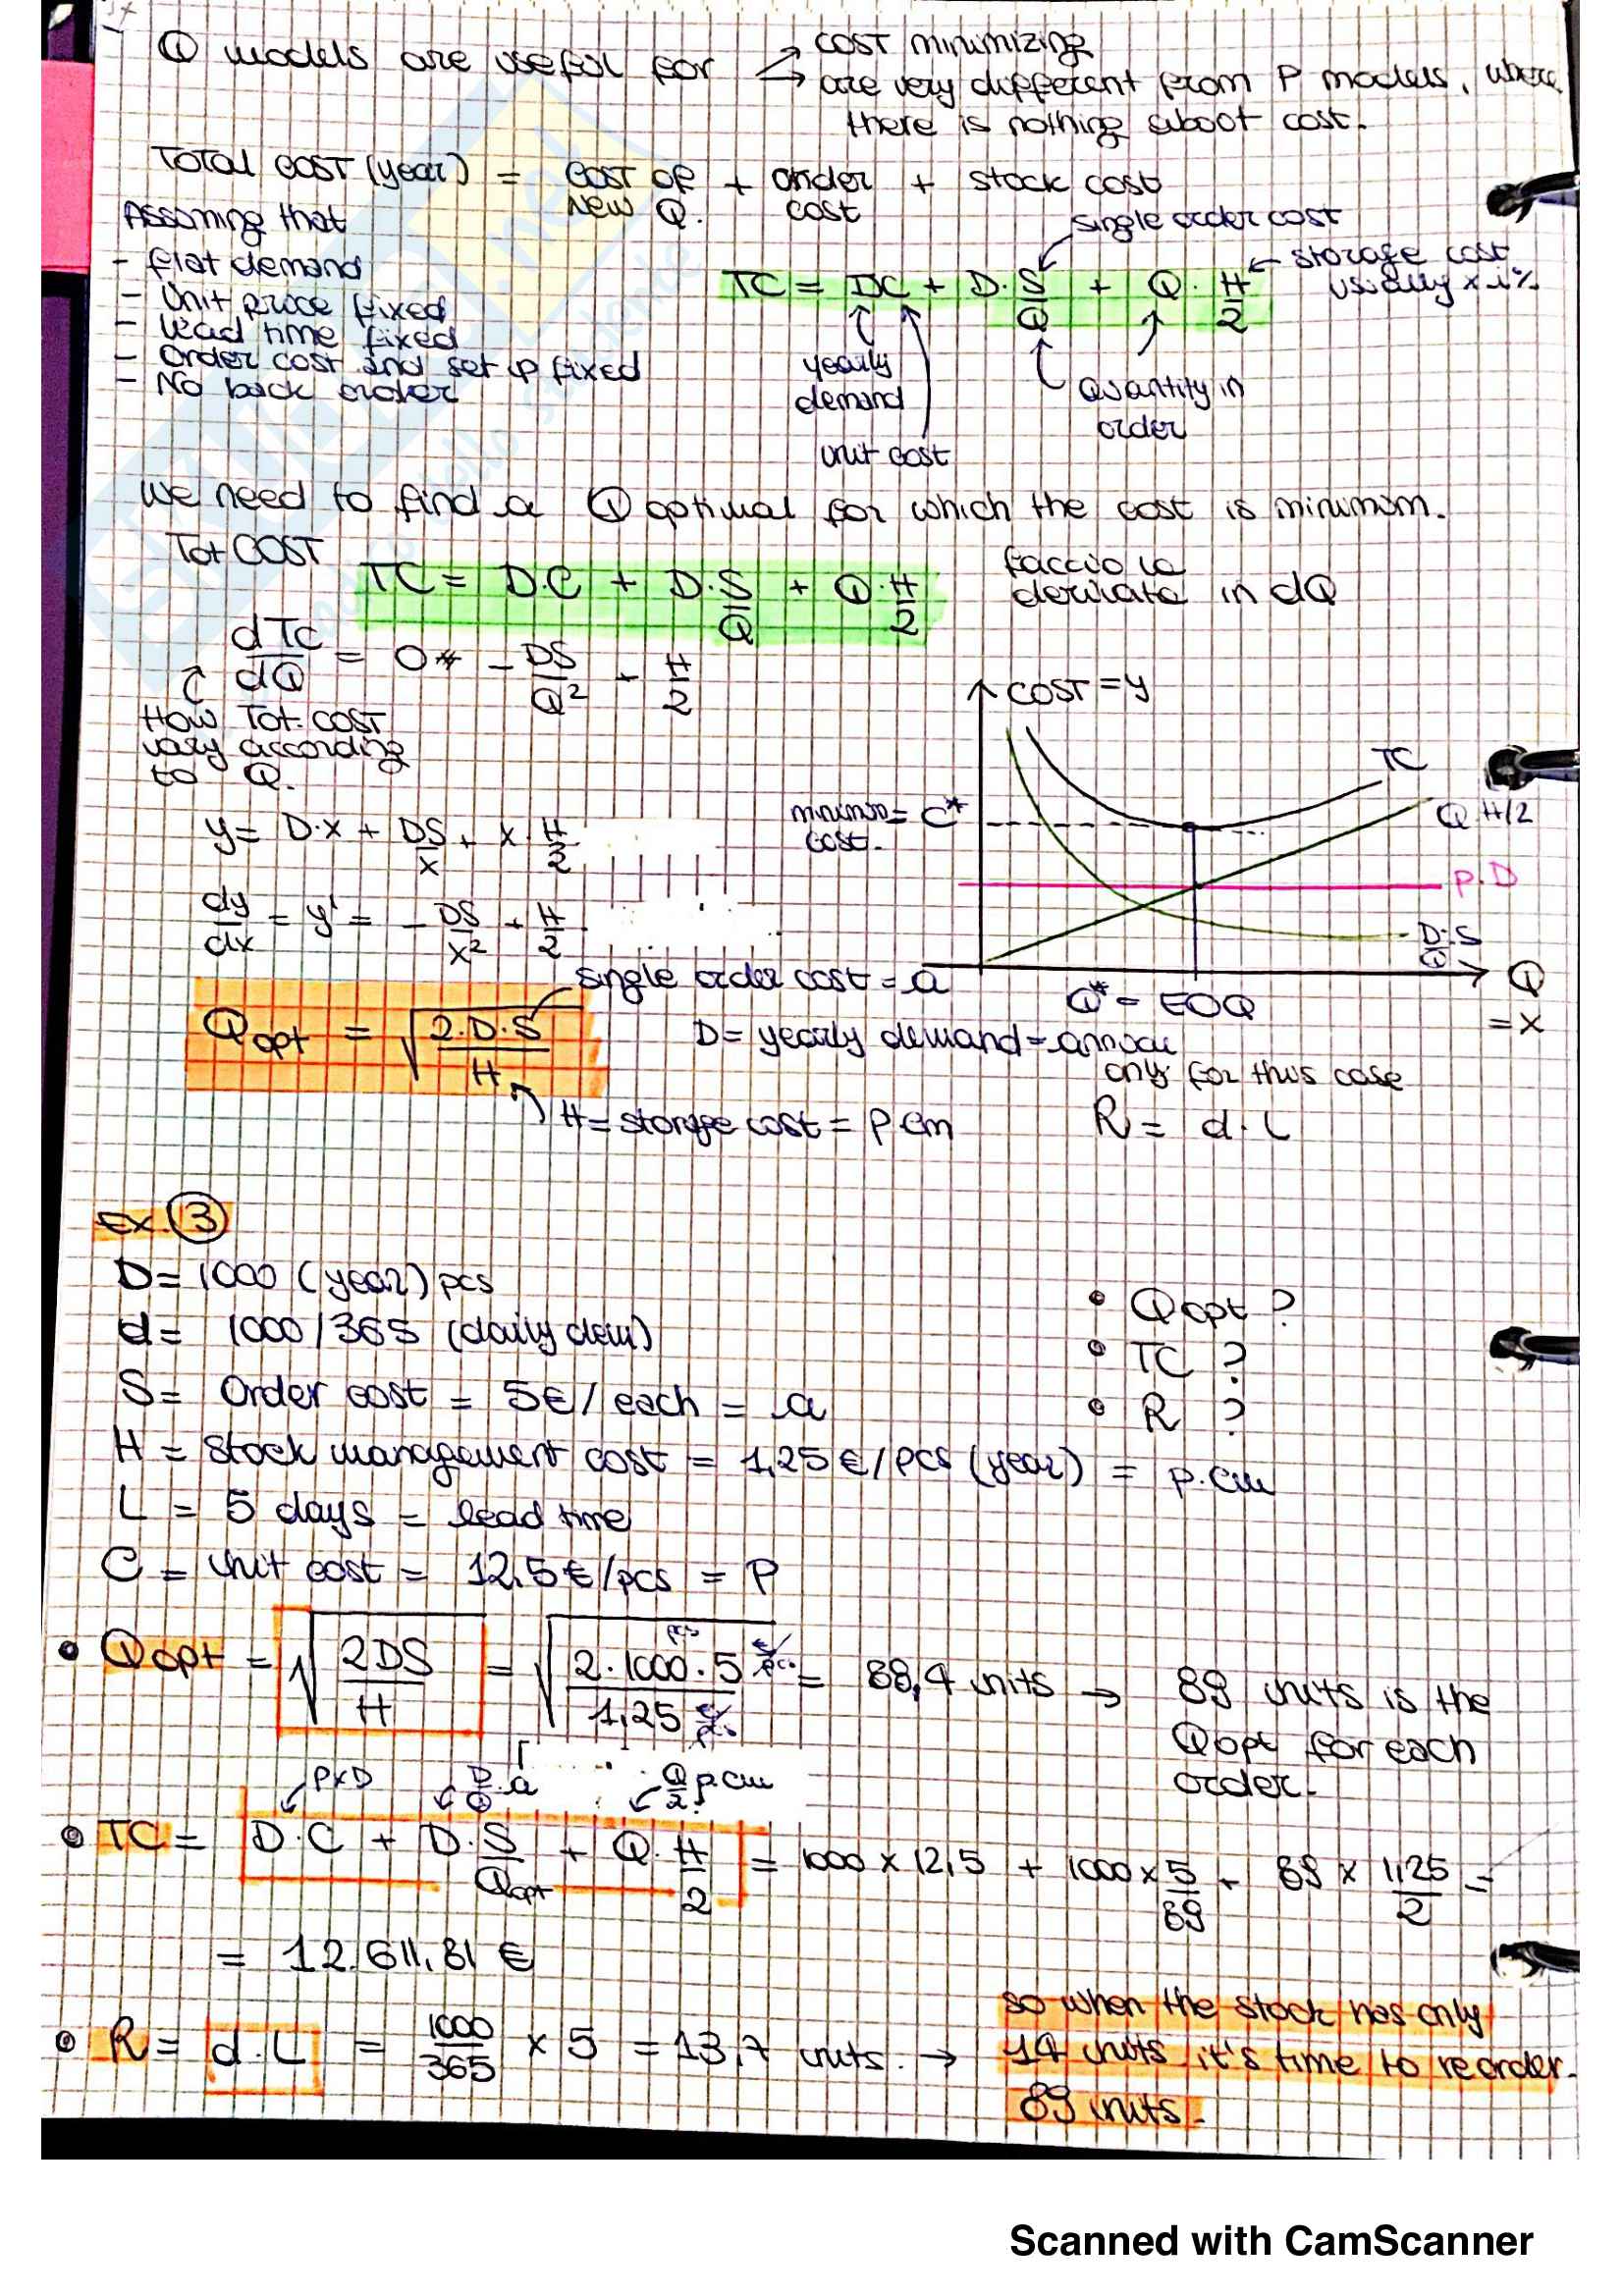 Q models are useful for → cost minimizing
→ are very different from P models, where
there is nothing about cost.
Total cost (year) = cost of new Q. + order cost + stock cost
Assuming that
- flat demand
- Unit price fixed
- lead time fixed
- Order cost and set up fixed
- No back order
single order cost
storage cost
usually x i%
TC = DC + D·S/Q + Q·H/2
yearly demand
unit cost
Quantity in order
we need to find a Q optimal for which the cost is minimum.
Tot COST
TC = D·C + D·S/Q + Q·H/2
faccio la
derivata in dQ
dTC/dQ = 0 - DS/Q² + H/2
How Tot. cost
vary according
to Q.
y = D·x + DS/x + x·H/2
dy/dx = y' = - DS/x² + H/2
COST = y
TC
Q H/2
minimum cost = C*
P.D
D·S/Q
Q
= x
Q* = EOQ
single order cost = a
Qopt = √2·D·S/H
D = yearly demand = annual
only for this case
H = storage cost = p.cm
R = d·L
Ex. 3
D = 1000 (year) pcs
d = 1000/365 (daily dem)
S = Order cost = 5€/each = a
H = Stock management cost = 1,25€/pcs (year) = p.cm
L = 5 days = lead time
C = unit cost = 12,5€/pcs = P
• Qopt ?
• TC ?
• R ?
• Qopt = √2DS/H = √2·1000·5/1,25 = 88,4 units → 89 units is the
Qopt for each
order.
PxD
D/Q·a
Q/2 p.cm
• TC = D·C + D·S/Qopt + Q·H/2 = 1000 x 12,5 + 1000 x 5/89 + 89 x 1,25/2 =
= 12.611,81 €
• R = d·L = 1000/365 x 5 = 13,7 units. →
so when the stock has only
14 units it's time to reorder
89 units.
Scanned with CamScanner